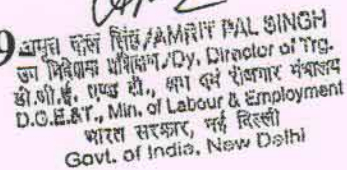 9
अमृत पाल सिंह/AMRIT PAL SINGH
उप निदेशक प्रशिक्षण/Dy. Director of Trg.
डी.जी.ई. एण्ड टी., श्रम एवं रोजगार मंत्रालय
D.G.E&T., Min. of Labour & Employment
भारत सरकार, नई दिल्ली
Govt. of India, New Delhi